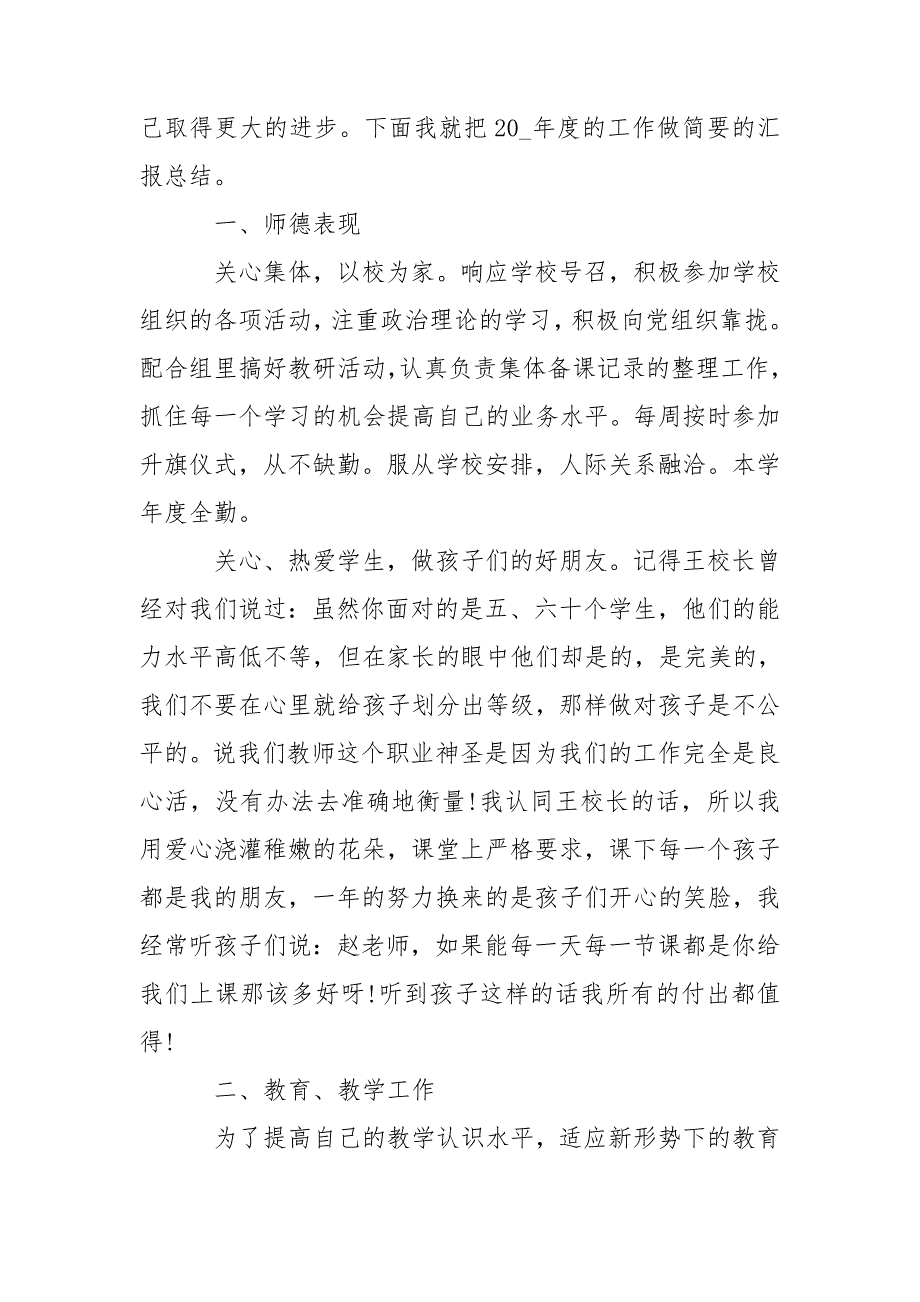 己取得更大的进步。下面我就把 20_年度的工作做简要的汇
报总结。
一、师德表现
关心集体，以校为家。响应学校号召，积极参加学校
组织的各项活动，注重政治理论的学习，积极向党组织靠拢。
配合组里搞好教研活动，认真负责集体备课记录的整理工作，
抓住每一个学习的机会提高自己的业务水平。每周按时参加
升旗仪式，从不缺勤。服从学校安排，人际关系融洽。本学
年度全勤。
关心、热爱学生，做孩子们的好朋友。记得王校长曾
经对我们说过：虽然你面对的是五、六十个学生，他们的能
力水平高低不等，但在家长的眼中他们却是的，是完美的，
我们不要在心里就给孩子划分出等级，那样做对孩子是不公
平的。说我们教师这个职业神圣是因为我们的工作完全是良
心活，没有办法去准确地衡量!我认同王校长的话，所以我
用爱心浇灌稚嫩的花朵，课堂上严格要求，课下每一个孩子
都是我的朋友，一年的努力换来的是孩子们开心的笑脸，我
经常听孩子们说：赵老师，如果能每一天每一节课都是你给
我们上课那该多好呀!听到孩子这样的话我所有的付出都值
得!
二、教育、教学工作
为了提高自己的教学认识水平，适应新形势下的教育